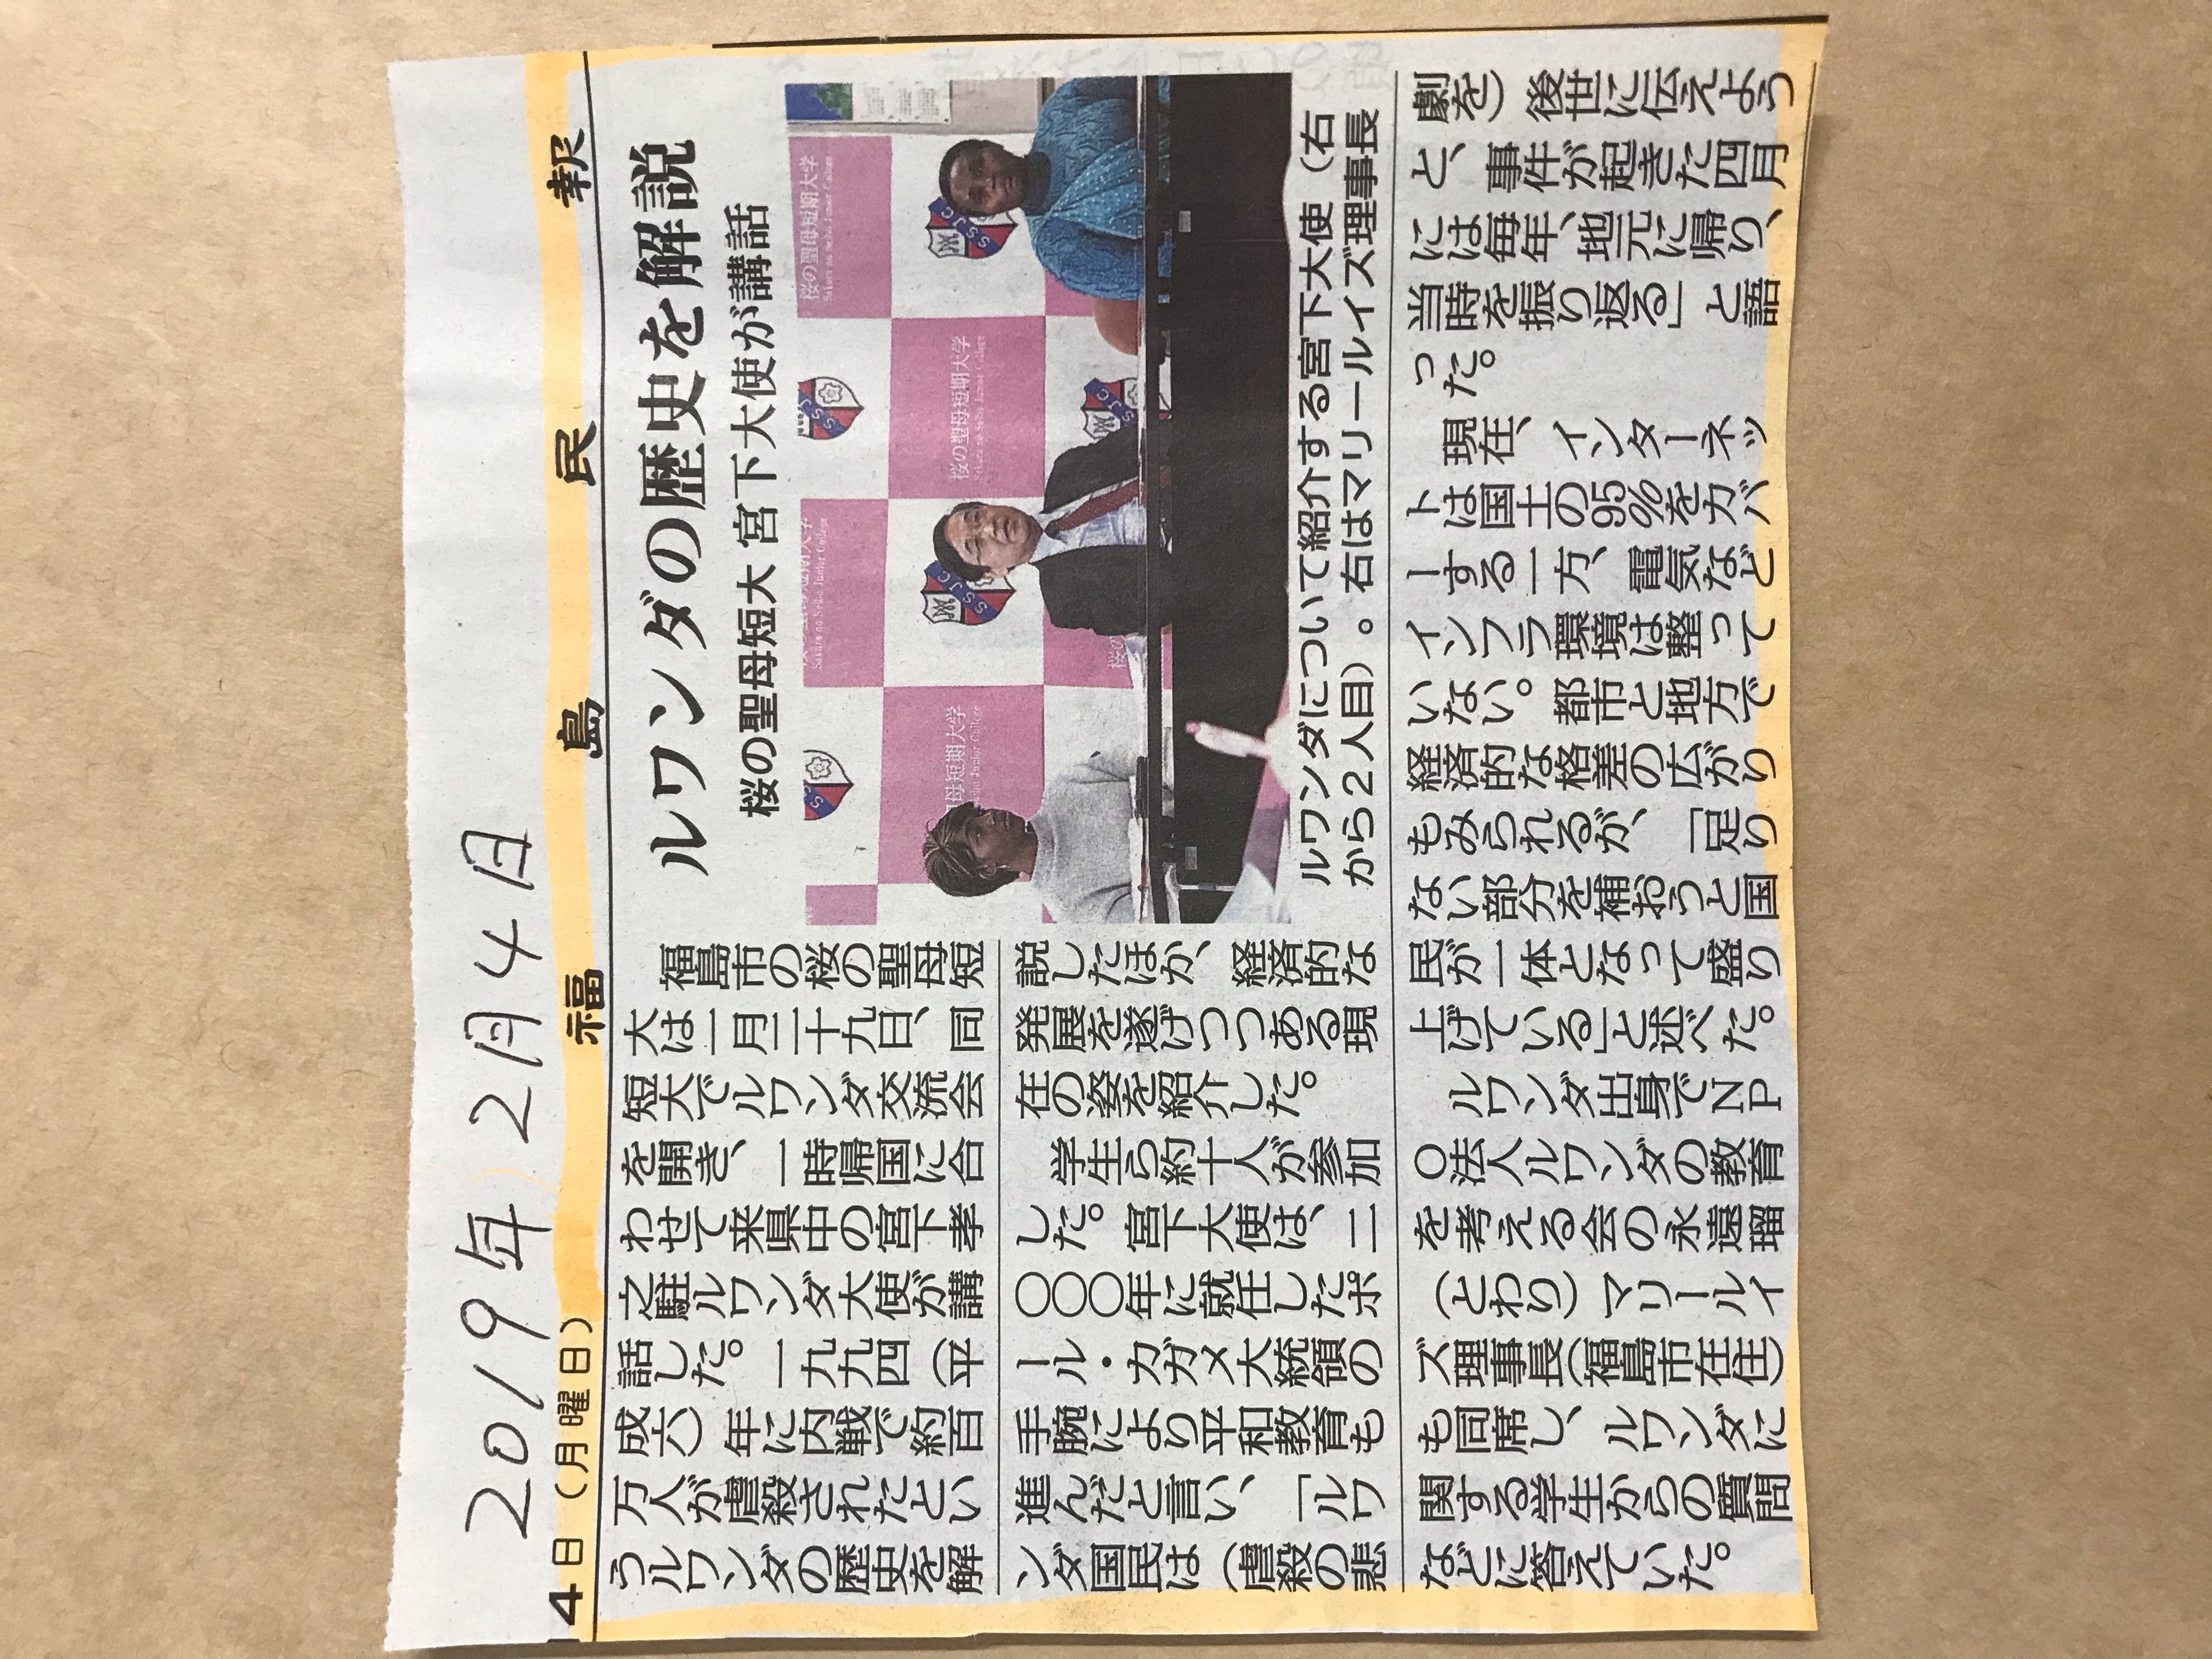 2019年2月4日
4日（月曜日）
福島民報
ルワンダの歴史を解説
桜の聖母短大 宮下大使が講話
桜の聖母短期大学
Sakura no Seibo Junior College
SSJC
ルワンダについて紹介する宮下大使（右
から２人目）。右はマリールイズ理事長
福島市の桜の聖母短
大は一月二十九日、同
短大でルワンダ交流会
を開き、一時帰国に合
わせて来県中の宮下孝
之駐ルワンダ大使が講
話した。一九九四（平
成六）年に内戦で約百
万人が虐殺されたとい
うルワンダの歴史を解
説したほか、経済的な
発展を遂げつつある現
在の姿を紹介した。
学生ら約十人が参加
した。宮下大使は、二
〇〇〇年に就任したポ
ール・カガメ大統領の
手腕により平和教育も
進んだと言い、「ルワ
ンダ国民は（虐殺の悲
劇を）後世に伝えよう
と、事件が起きた四月
には毎年、地元に帰り、
当時を振り返る」と語
った。
現在、インターネッ
トは国土の95％をカバ
ーする一方、電気など
インフラ環境は整って
いない。都市と地方で
経済的な格差の広がり
もみられるが、「足り
ない部分を補おうと国
民が一体となって盛り
上げている」と述べた。
ルワンダ出身でＮＰ
Ｏ法人ルワンダの教育
を考える会の永遠瑠
（とわり）マリールイ
ズ理事長（福島市在住）
も同席し、ルワンダに
関する学生からの質問
などに答えていた。